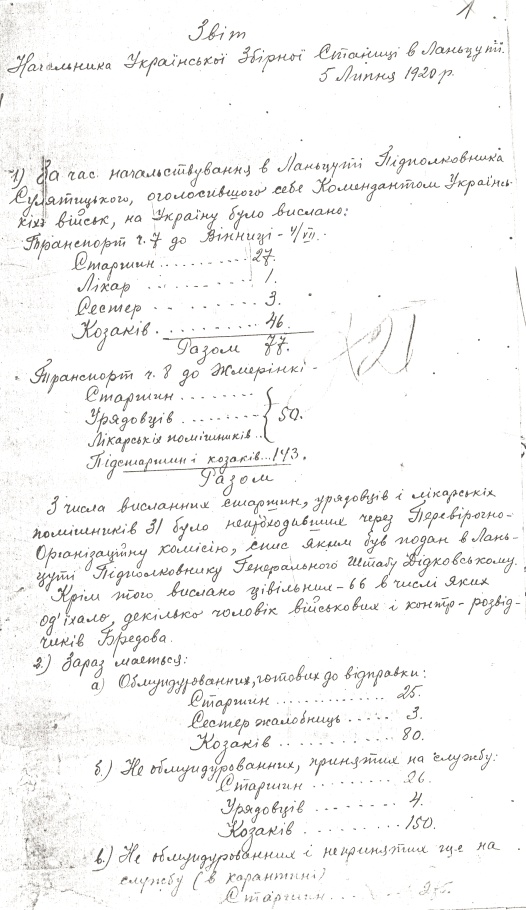 1.
Звіт
Начальника Української Збірної Станиці в Ланьцуті.
5 Липня 1920 р.
1) За час начальствування в Ланьцуті Підполковника
Сулятицького, оголосившого себе Комендантом Українсь-
кіх військ, на Україну було вислано:
Транспорт ч. 7 до Вінниці - 4/VII.-
Старшин .......... 27.
Лікар .......... 1.
Сестер .......... 3.
Козаків .......... 46.
Разом 77.
Транспорт ч. 8 до Жмерінкі -
Старшин ........
Урядовців ........ } 50.
Лікарських помішників ..
Підстаршин і козаків ... 143.
Разом
З числа висланних старшин, урядовців і лікарскіх
помішників 31 було неперейходивших через Перевірочно-
Організаційну комісію, спис яким був подан в Лань-
цуті Підполковнику Генерального Штабу Відковському.
Крім того вислано цівільних - 66 в числі яких
од'їхало, декілько чоловік військових і контр-розвід-
чиків Бредова.
2.) Зараз мається:
а) Обмундурованних, готових до відправки:
Старшин .............. 25.
Сестер жалобниць ..... 3.
Козаків ............ 80.
б.) Не обмундурованних, принятих на службу:
Старшин .......... 26.
Урядовців ........ 4.
Козаків .......... 150.
в.) Не обмундурованних і непринятих ще на
службу (в карантині)
Старшин .......